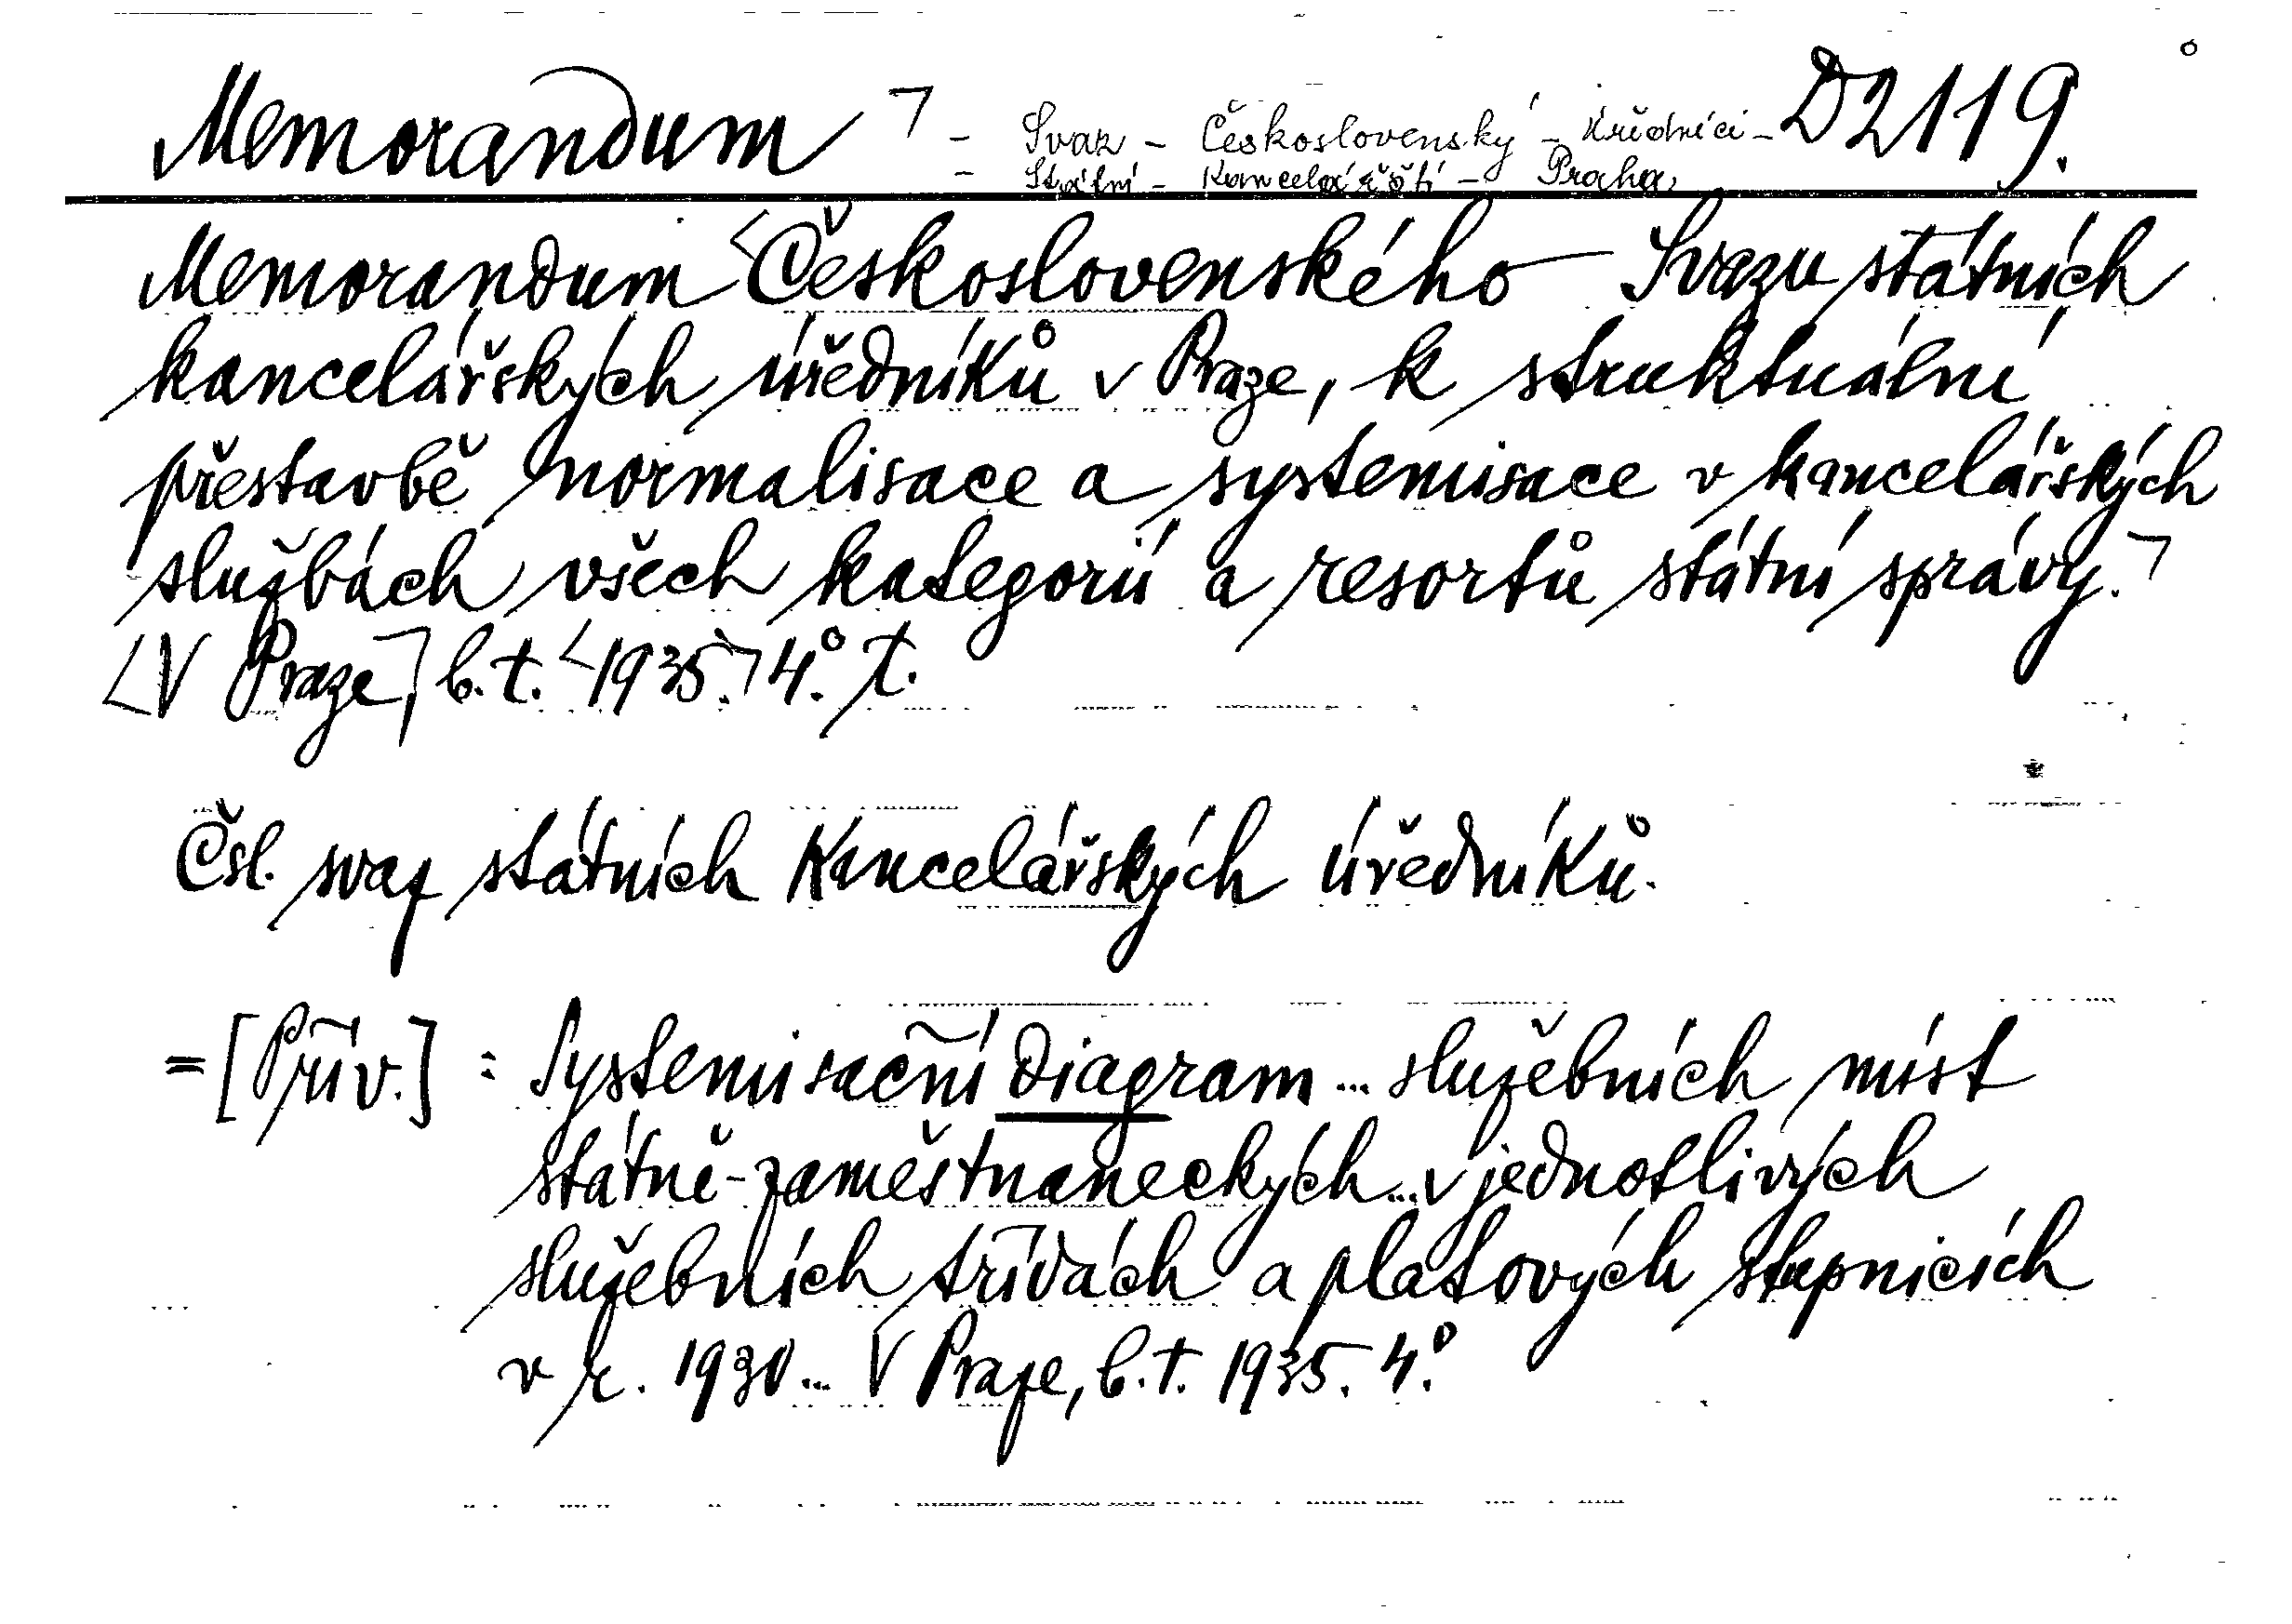 Memorandum ⌝ - Svaz - Československý - Úředníci - D2119.
- Státní - Kancelářští - Praha,
Memorandum <Československého Svazu státních
kancelářských úředníků v Praze, k struktuální
přestavbě normalisace a systemisace v kancelářských
službách všech kategorií a resortů státní správy.⌝
<V Praze,⌝ b.t. <1935.⌝ 4.° T.
Čsl. svaz státních kancelářských úředníků.
= [Přív.] : Systemisační diagram ... služebních míst
státně-zaměstnaneckých... v jednotlivých
služebních třídách a platových stupnicích
v r. 1930... V Praze, b.t. 1935. 4.°